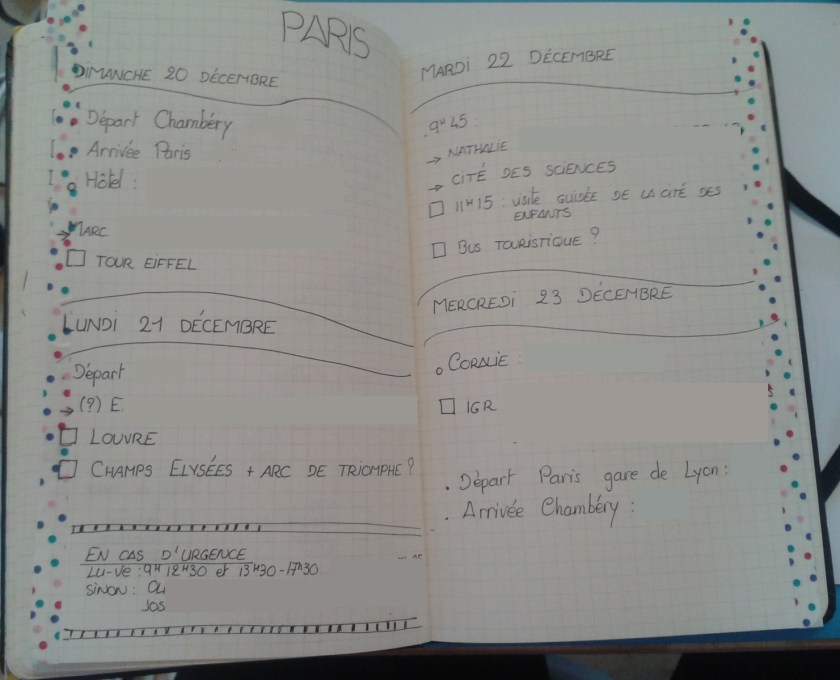 PARIS
DIMANCHE 20 DÉCEMBRE
Départ Chambéry
Arrivée Paris
Hôtel :
→ MARC
TOUR EIFFEL
LUNDI 21 DÉCEMBRE
Départ
→ (?) E.
LOUVRE
CHAMPS ELYSÉES + ARC DE TRIOMPHE ?
EN CAS D'URGENCE
LU-VE : 9H 12H30 et 13H30-17H30
SINON : OU
JOS
MARDI 22 DÉCEMBRE
9H45 :
→ NATHALIE
→ CITÉ DES SCIENCES
11H15 : VISITE GUIDÉE DE LA CITÉ DES
ENFANTS
BUS TOURISTIQUE ?
MERCREDI 23 DÉCEMBRE
CORALIE :
IGR
. Départ Paris gare de Lyon :
. Arrivée Chambéry :